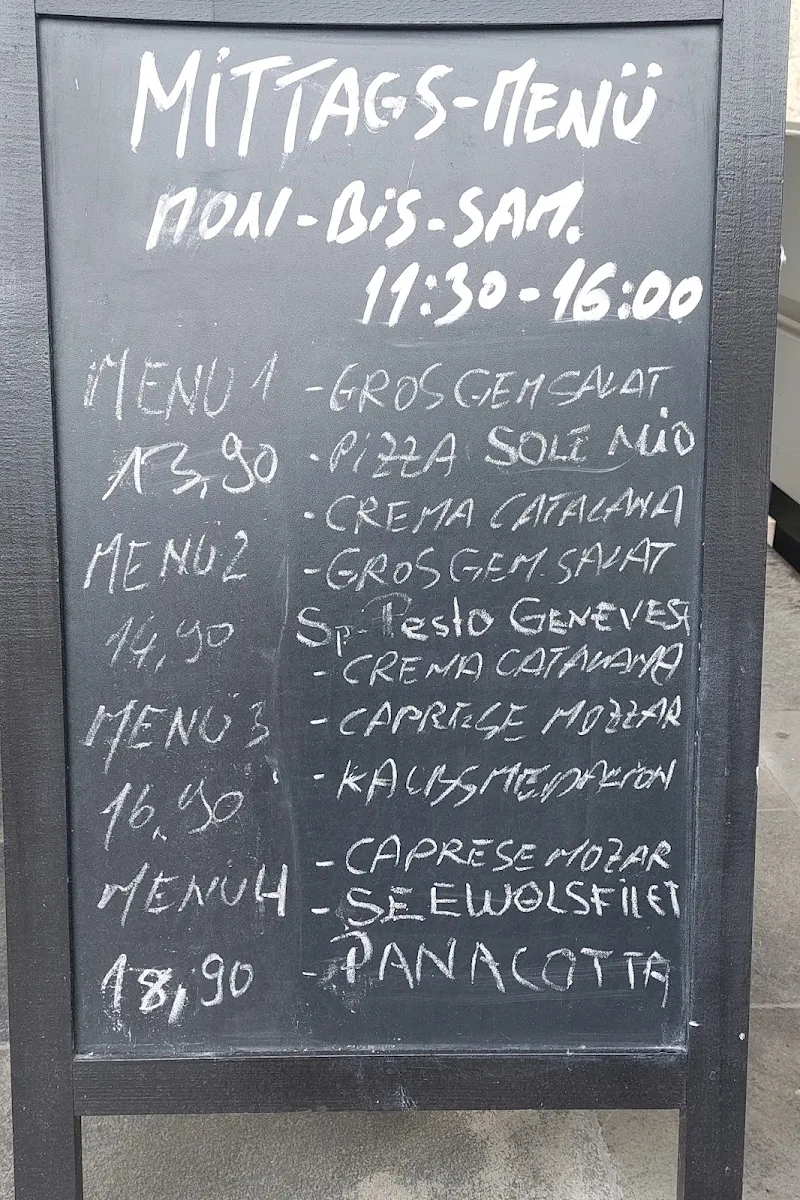 MiTTAGS-MENÜ
MON-BiS-SAM.
11:30-16:00
MENÜ 1 -GROS GEM SALAT
13,90 -PiZZA SOLE MiO
-CREMA CATALANA
MENÜ 2 -GROS GEM. SALAT
14,90 Sp-Pesto GENEVESE
-CREMA CATALANA
MENÜ 3 -CAPRESE MOZZAR
16,90 -KALBSMEDALION
-CAPRESE MOZAR
MENÜ 4 -SEEWOLSFiLET
18,90 -PANACOTTA